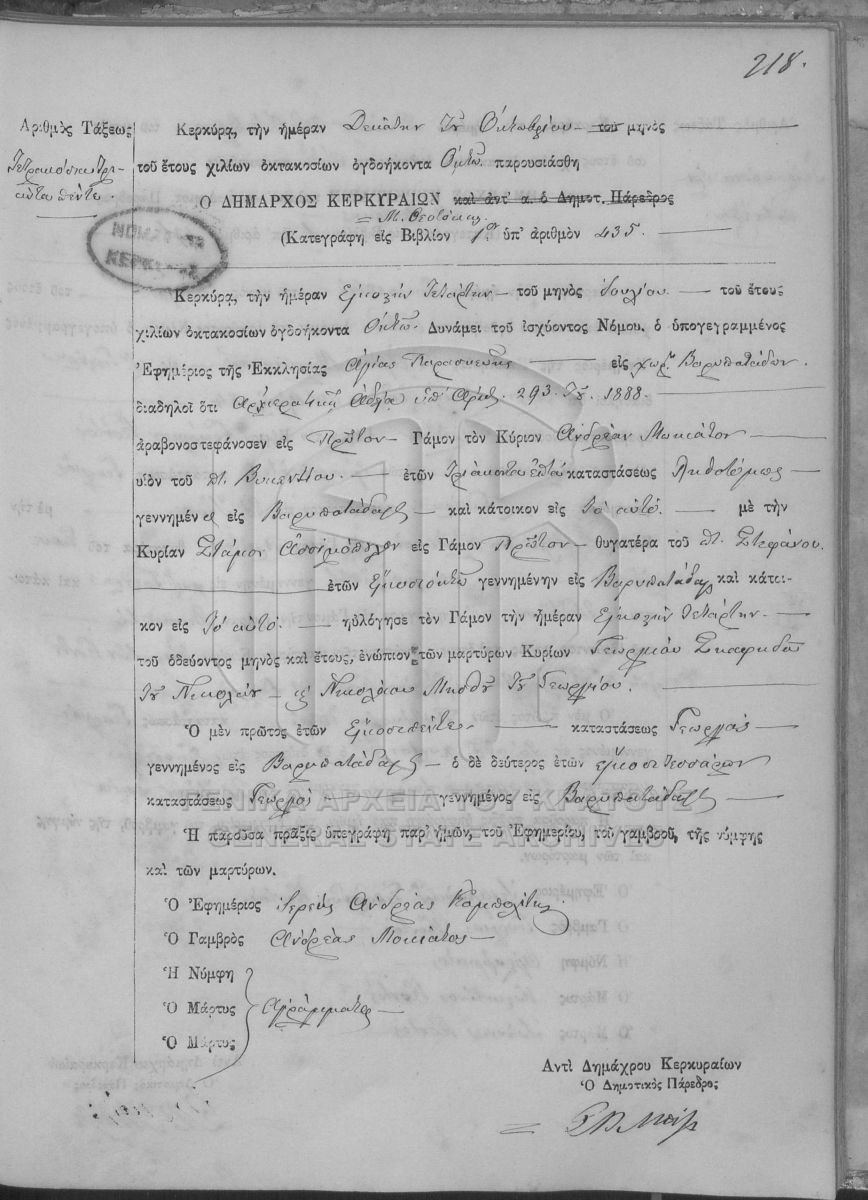 218.
Ἀριθμὸς Τάξεως
Τετρακόσια τρι-
άκοντα πέντε.
ΚΕΡΚΥΡΑΣ
Κερκύρᾳ, τὴν ἡμέραν Δεκάτην τοῦ Ὀκτωβρίου τοῦ μηνὸς
τοῦ ἔτους χιλίων ὀκτακοσίων ὀγδοήκοντα Ὀκτὼ παρουσιάσθη
Ὁ ΔΗΜΑΡΧΟΣ ΚΕΡΚΥΡΑΙΩΝ καὶ ἀντ' α. ὁ Δημοτ. Πάρεδρος
Μ. Θεοτόκης
(Κατεγράφη εἰς Βιβλίον 1ον ὑπ' ἀριθμὸν 435.
Κερκύρᾳ, τὴν ἡμέραν Εἰκοστὴν τετάρτην τοῦ μηνὸς Ἰουλίου. τοῦ ἔτους
χιλίων ὀκτακοσίων ὀγδοήκοντα Ὀκτὼ. Δυνάμει τοῦ ἰσχύοντος Νόμου. ὁ ὑπογεγραμμένος
Ἐφημέριος τῆς Ἐκκλησίας Ἁγίας Παρασκευῆς εἰς χωρ. Βαρυπατάδων
διαδηλοῖ ὅτι Ἀρχιερατικῇ ἀδείᾳ ὑπ' Ἀριθ. 293. τοῦ 1888.
ἀραβονοστεφάνοσεν εἰς Πρῶτον Γάμον τὸν Κύριον Ἀνδρέαν Μοκιάτον
υἱὸν τοῦ π. Βικεντίου. ἐτῶν Τριάκοντα ἑπτὰ καταστάσεως
γεννημέν α εἰς Βαρυπατάδαις καὶ κάτοικον εἰς τὸ αὐτό. μὲ τὴν
Κυρίαν Στάμον εἰς Γάμον Πρῶτον θυγατέρα τοῦ π. Στεφάνου.
ἐτῶν Εἰκοσιοκτὼ γεννημένην εἰς Βαρυπατάδαις καὶ κάτοι-
κον εἰς τὸ αὐτό. ηὐλόγησε τὸν Γάμον τὴν ἡμέραν Εἰκοστὴν τετάρτην.
τοῦ ὁδεύοντος μηνὸς καὶ ἔτους, ἐνώπιον τῶν μαρτύρων Κυρίων Γεωργίου Σκαφιδᾶ
τοῦ Νικολάου κ Νικολάου τοῦ Γεωργίου.
Ὁ μὲν πρῶτος ἐτῶν Εἰκοσιπέντε καταστάσεως Γεωργὸς
γεννημένος εἰς Βαρυπατάδαις ὁ δὲ δεύτερος ἐτῶν εἴκοσι τεσσάρων
καταστάσεως Γεωργὸς γεννημένος εἰς Βαρυπατάδαις
ΓΕΝΙΚΑ ΑΡΧΕΙΑ ΤΟΥ ΚΡΑΤΟΥΣ
GENERAL STATE ARCHIVES
Ἡ παροῦσα πρᾶξις ὑπεγράφη παρ' ἡμῶν, τοῦ Ἐφημερίου, τοῦ γαμβροῦ, τῆς νύμφης
καὶ τῶν μαρτύρων.
Ὁ Ἐφημέριος ἱερεὺς Ἀνδρέας Κομπολίτης
Ὁ Γαμβρὸς Ἀνδρέας Μοκιάτος
Ἡ Νύμφη
Ὁ Μάρτυς Ἀγράμματοι
Ὁ Μάρτυς
Ἀντὶ Δημάχρου Κερκυραίων
Ὁ Δημοτικὸς Πάρεδρος